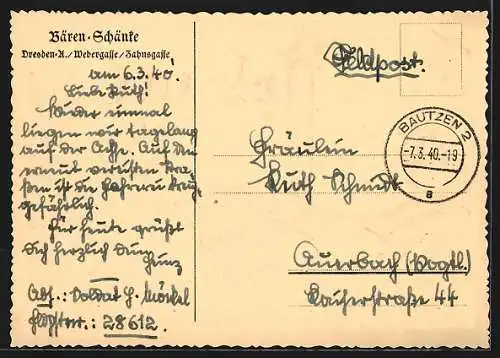 Bären-Schänke
Dresden-A./Webergasse/Zahnsgasse
am 6.3.40!
Liebe Ruth!
Wieder einmal
liegen wir tagelang
auf der Achse. Auf den
erneut vereisten Stra-
ßen ist die Fahrerei
gefährlich.
Für heute grüßt
Dich herzlich Dein
Heinz
Abs.: Soldat H. Möckel
28612.
Feldpost.
BAUTZEN 2
-7.3.40.-19
a
Fräulein
Ruth Schmidt
Auerbach (Vogtl.)
Kaiserstraße 44